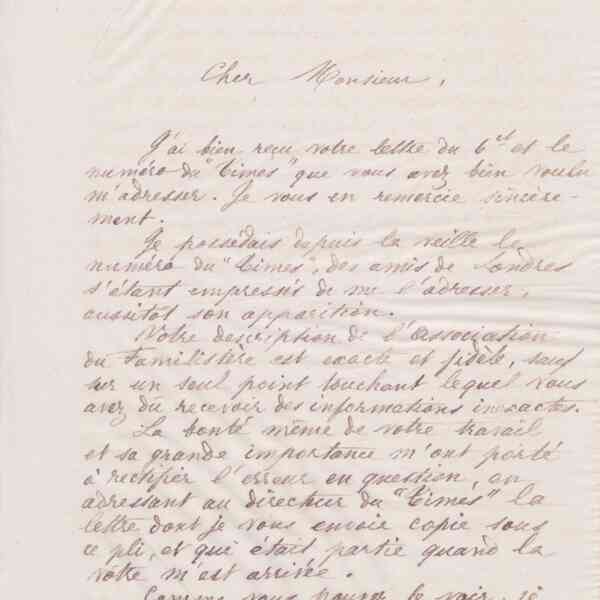 Cher Monsieur,
J'ai bien reçu votre lettre du 6 ct et le
numéro du "Times" que vous avez bien voulu
m'adresser. Je vous en remercie sincère-
ment.
Je possédais depuis la veille le
numéro du "Times", des amis de Londres
s'étant empressés de me l'adresser,
aussitot son apparition.
Votre description de l'Association
du Familistère est exacte et fidèle, sauf
sur un seul point touchant lequel vous
avez dû recevoir des informations inexactes.
La bonté même de votre travail
et sa grande importance m'ont porté
à rectifier l'erreur en question, en
adressant au directeur du "Times" la
lettre dont je vous envoie copie sous
ce pli, et qui était partie quand la
vôtre m'est arrivée.
Comme vous pouvez le voir, je